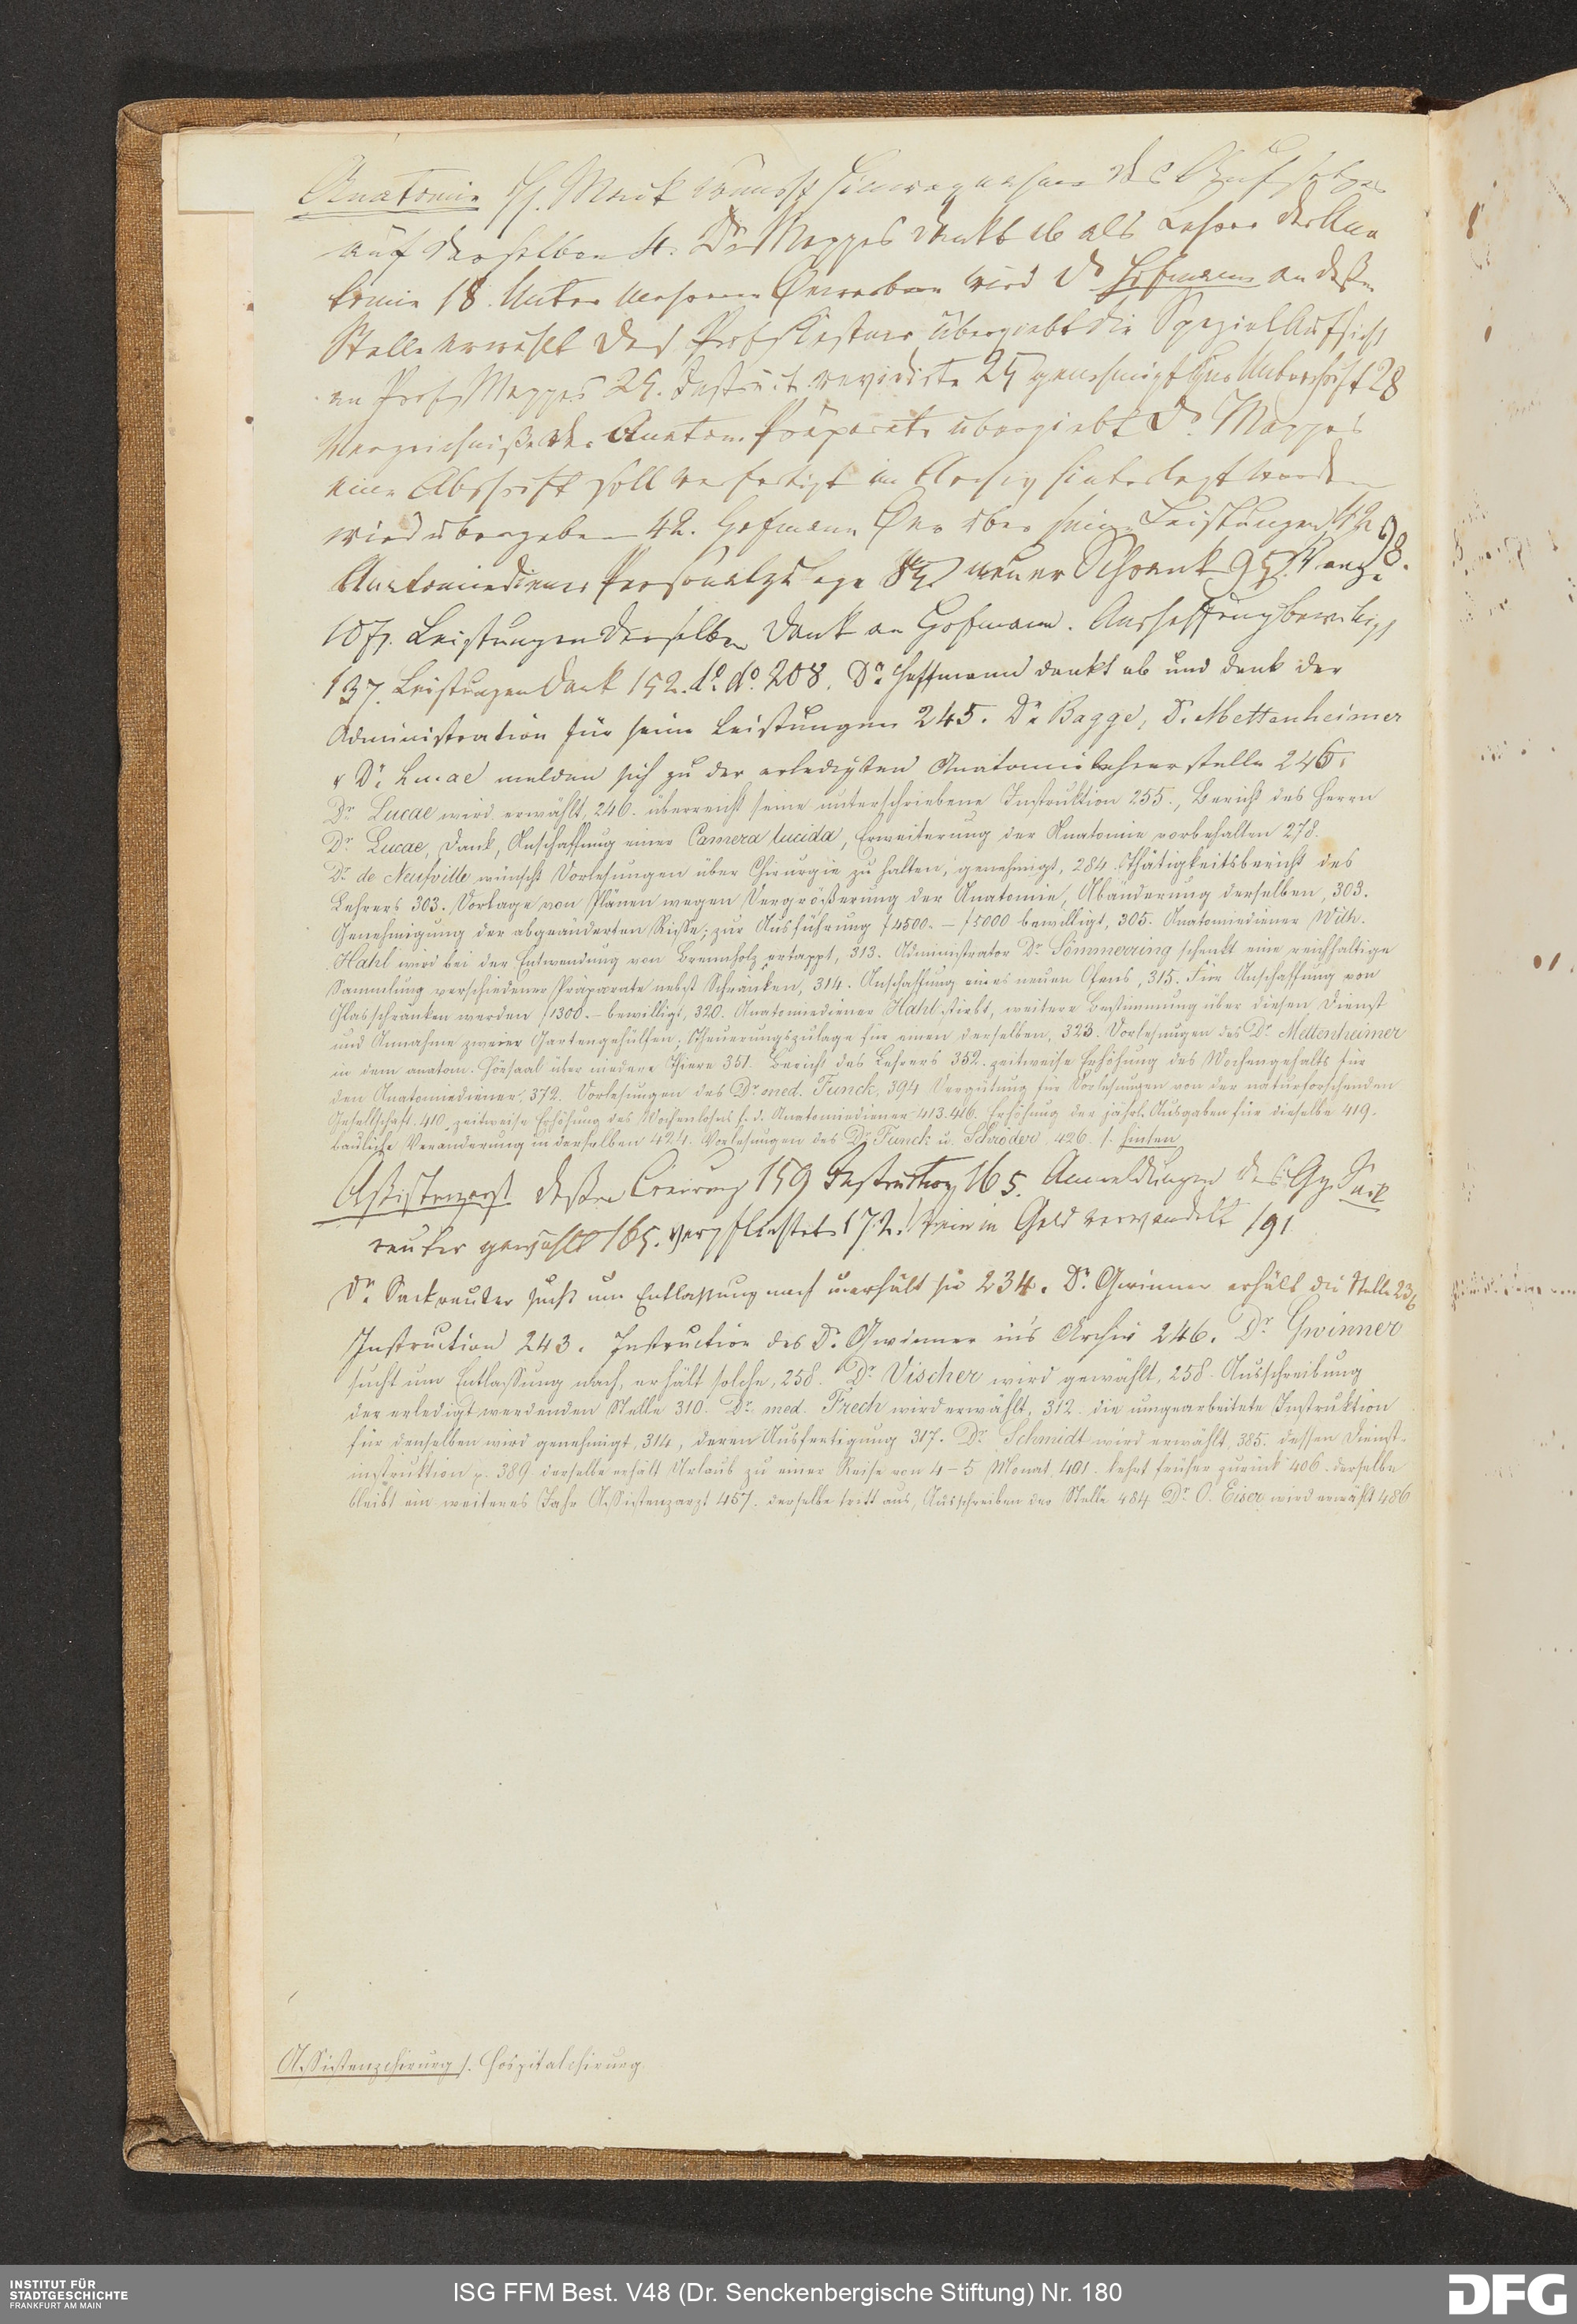 Anatomie H. Marck wünscht Hinwegnahme des
auf derselben 4. Dr Mappes dankt ab als Lehrer der Ana
tomie 18. Unter mehreren Bewerbern wird Dr Hofmann an deßen
Stelle erwählt Dr Prof Kestner übergiebt die Spezial Aufsicht
an Prof Mappes 25. Instruct. revidirte 25 genehmigt Unterschrift 28
Verzeichniße der Anatom. Präparate übergiebt Dr Mappes
eine Abschrift soll verfertigt im Archiv hinterlegt werden
wird übergeben 42. Hofmann über seine Leistungen 42
Anatomiediener Personalzulage neuer Schrank 95 98.
107. Leistungen derselben Dank an Hofmann. Anschaffung bewilligt
137. Leistungen Dank 152. do. do. 208. Dr Hoffmann dankt ab und dank der
Administration für seine Leistungen 245. Dr Bagge, Dr Mettenheimer
& Dr Lucae melden sich zu der erledigten Anatomielehrerstelle 246.
Dr Lucae wird erwählt, 246. überreicht seine unterschriebene Instruktion 255., Bericht des Herrn
Dr Lucae, Dank, Anschaffung einer Camera lucida, Erweiterung der Anatomie vorbehalten 278.
Dr de Neufville wünscht Vorlesungen über Chirurgie zu halten, genehmigt, 284. Thätigkeitsbericht des
Lehrers 303. Vorlage von Plänen wegen Vergrößerung der Anatomie, Abänderung derselben, 303.
Genehmigung der abgeänderten Riße; zur Ausführung f 4500.– f 5000 bewilligt, 305. Anatomiediener Wilh.
Hahl wird bei der Entwendung von Brennholz ertappt, 313. Administrator Dr Sömmerring schenkt eine reichhaltige
Sammlung verschiedener Präparate nebst Schränken, 314. Anschaffung eines neuen Ofens, 315. Für Anschaffung von
Glasschranken werden f 1300.– bewilligt, 320. Anatomiediener Hahl stirbt, weitere Bestimmung über diesen Dienst
und Annahme zweier Gartengehülfen; Theuerungszulage für einen derselben, 323. Vorlesungen des Dr Mettenheimer
in dem anatom. Hörsaal über niedere Thiere 351. Bericht des Lehrers 352. zeitweise Erhöhung des Wochengehalts für
den Anatomiediener, 372. Vorlesungen des Dr med. Funck, 394 Vergütung für Vorlesungen von der naturforschenden
Gesellschaft. 410, zeitweise Erhöhung des Wochenlohns f. d. Anatomiediener 413. 416. Erhöhung der jährl. Ausgaben für dieselbe 419.
bauliche Veränderung in derselben 424. Vorlesungen des Dr Funck u. Schröder 426. s. hinten
Assistenzarzt deßen Creirung 159 Instruction 165. Anmeldungen des Sack
reuter gewählt 165. verpflichtet 172. Wein in Geld verwandelt 191
Dr Sackreuter sucht um Entlassung nach u. erhält sie 234. Dr Gwinner erhält die Stelle 236
Instruction 243. Instruction des Dr Gwinner ins Archiv 246. Dr Gwinner
sucht um Entlaßung nach, erhält solche, 258. Dr Vischer wird gewählt, 258. Ausschreibung
der erledigt werdenden Stelle 310. Dr med. Frech wird erwählt, 312. die umgearbeitete Instruktion
für denselben wird genehmigt, 314, deren Ausfertigung 317. Dr Schmidt wird erwählt, 385. dessen Dienst-
instruktion p. 389 derselbe erhält Urlaub zu einer Reise von 4–5 Monat. 401. kehrt früher zurück 406. derselbe
bleibt ein weiteres Jahr Assistenzarzt 457. derselbe tritt aus, Ausschreiben der Stelle 484 Dr O. Eiser wird erwählt 486
Assistenzchirurg s. Hospitalchirurg.
INSTITUT FÜR
STADTGESCHICHTE
FRANKFURT AM MAIN
ISG FFM Best. V48 (Dr. Senckenbergische Stiftung) Nr. 180
DFG